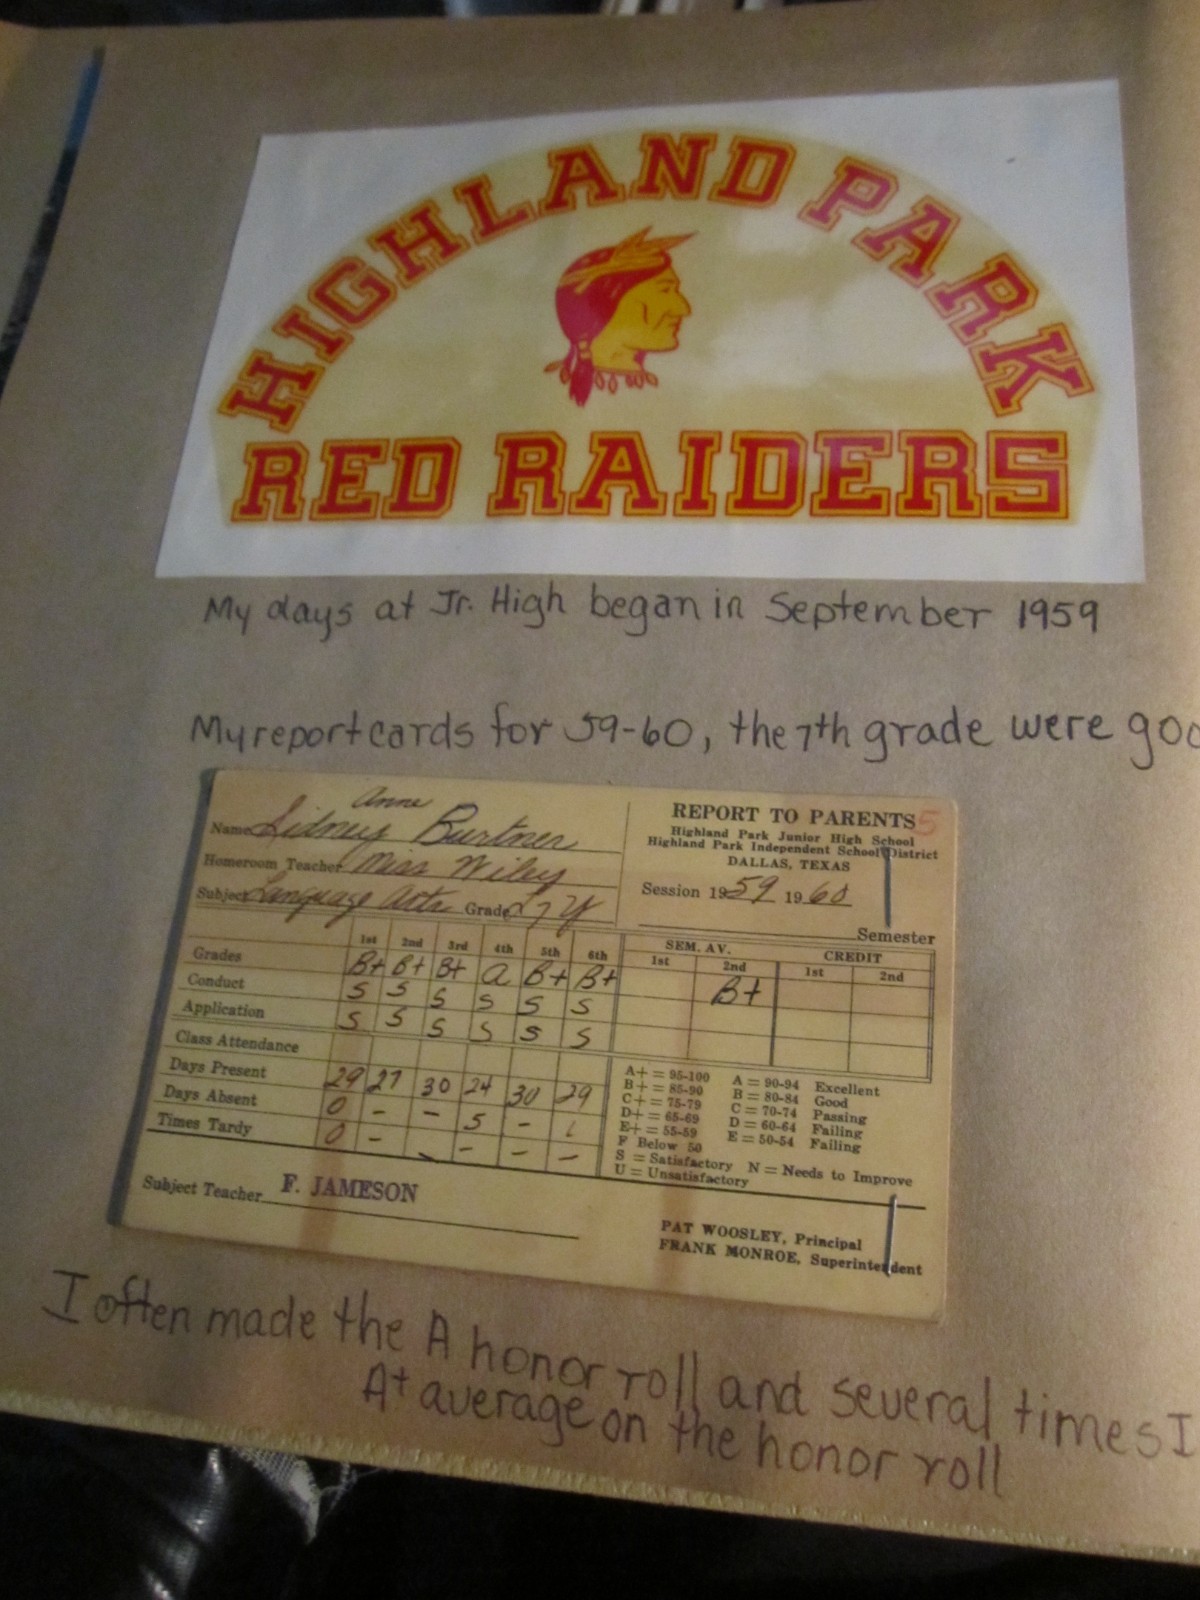 HIGHLAND PARK
RED RAIDERS
My days at Jr. High began in September 1959
My report cards for 59-60, the 7th grade were goo
REPORT TO PARENTS 5
Highland Park Junior High School
Highland Park Independent School District
DALLAS, TEXAS
Session 1959 1960
Semester
Anne
Name Sidney Burtner
Homeroom Teacher Miss Wiley
Subject Language Arts Grade 7Y
1st 2nd 3rd 4th 5th 6th
Grades B+ B+ B+ A B+ B+
Conduct S S S S S S
Application S S S S S S
Class Attendance
Days Present 29 27 30 24 30 29
Days Absent 0 - - 5 - 1
Times Tardy 0 - - - - -
SEM. AV. CREDIT
1st 2nd 1st 2nd
B+
A+ = 95-100 A = 90-94 Excellent
B+ = 85-90 B = 80-84 Good
C+ = 75-79 C = 70-74 Passing
D+ = 65-69 D = 60-64 Failing
E+ = 55-59 E = 50-54 Failing
F Below 50
S = Satisfactory N = Needs to Improve
U = Unsatisfactory
Subject Teacher F. JAMESON
PAT WOOSLEY, Principal
FRANK MONROE, Superintendent
I often made the A honor roll and several times I
A+ average on the honor roll